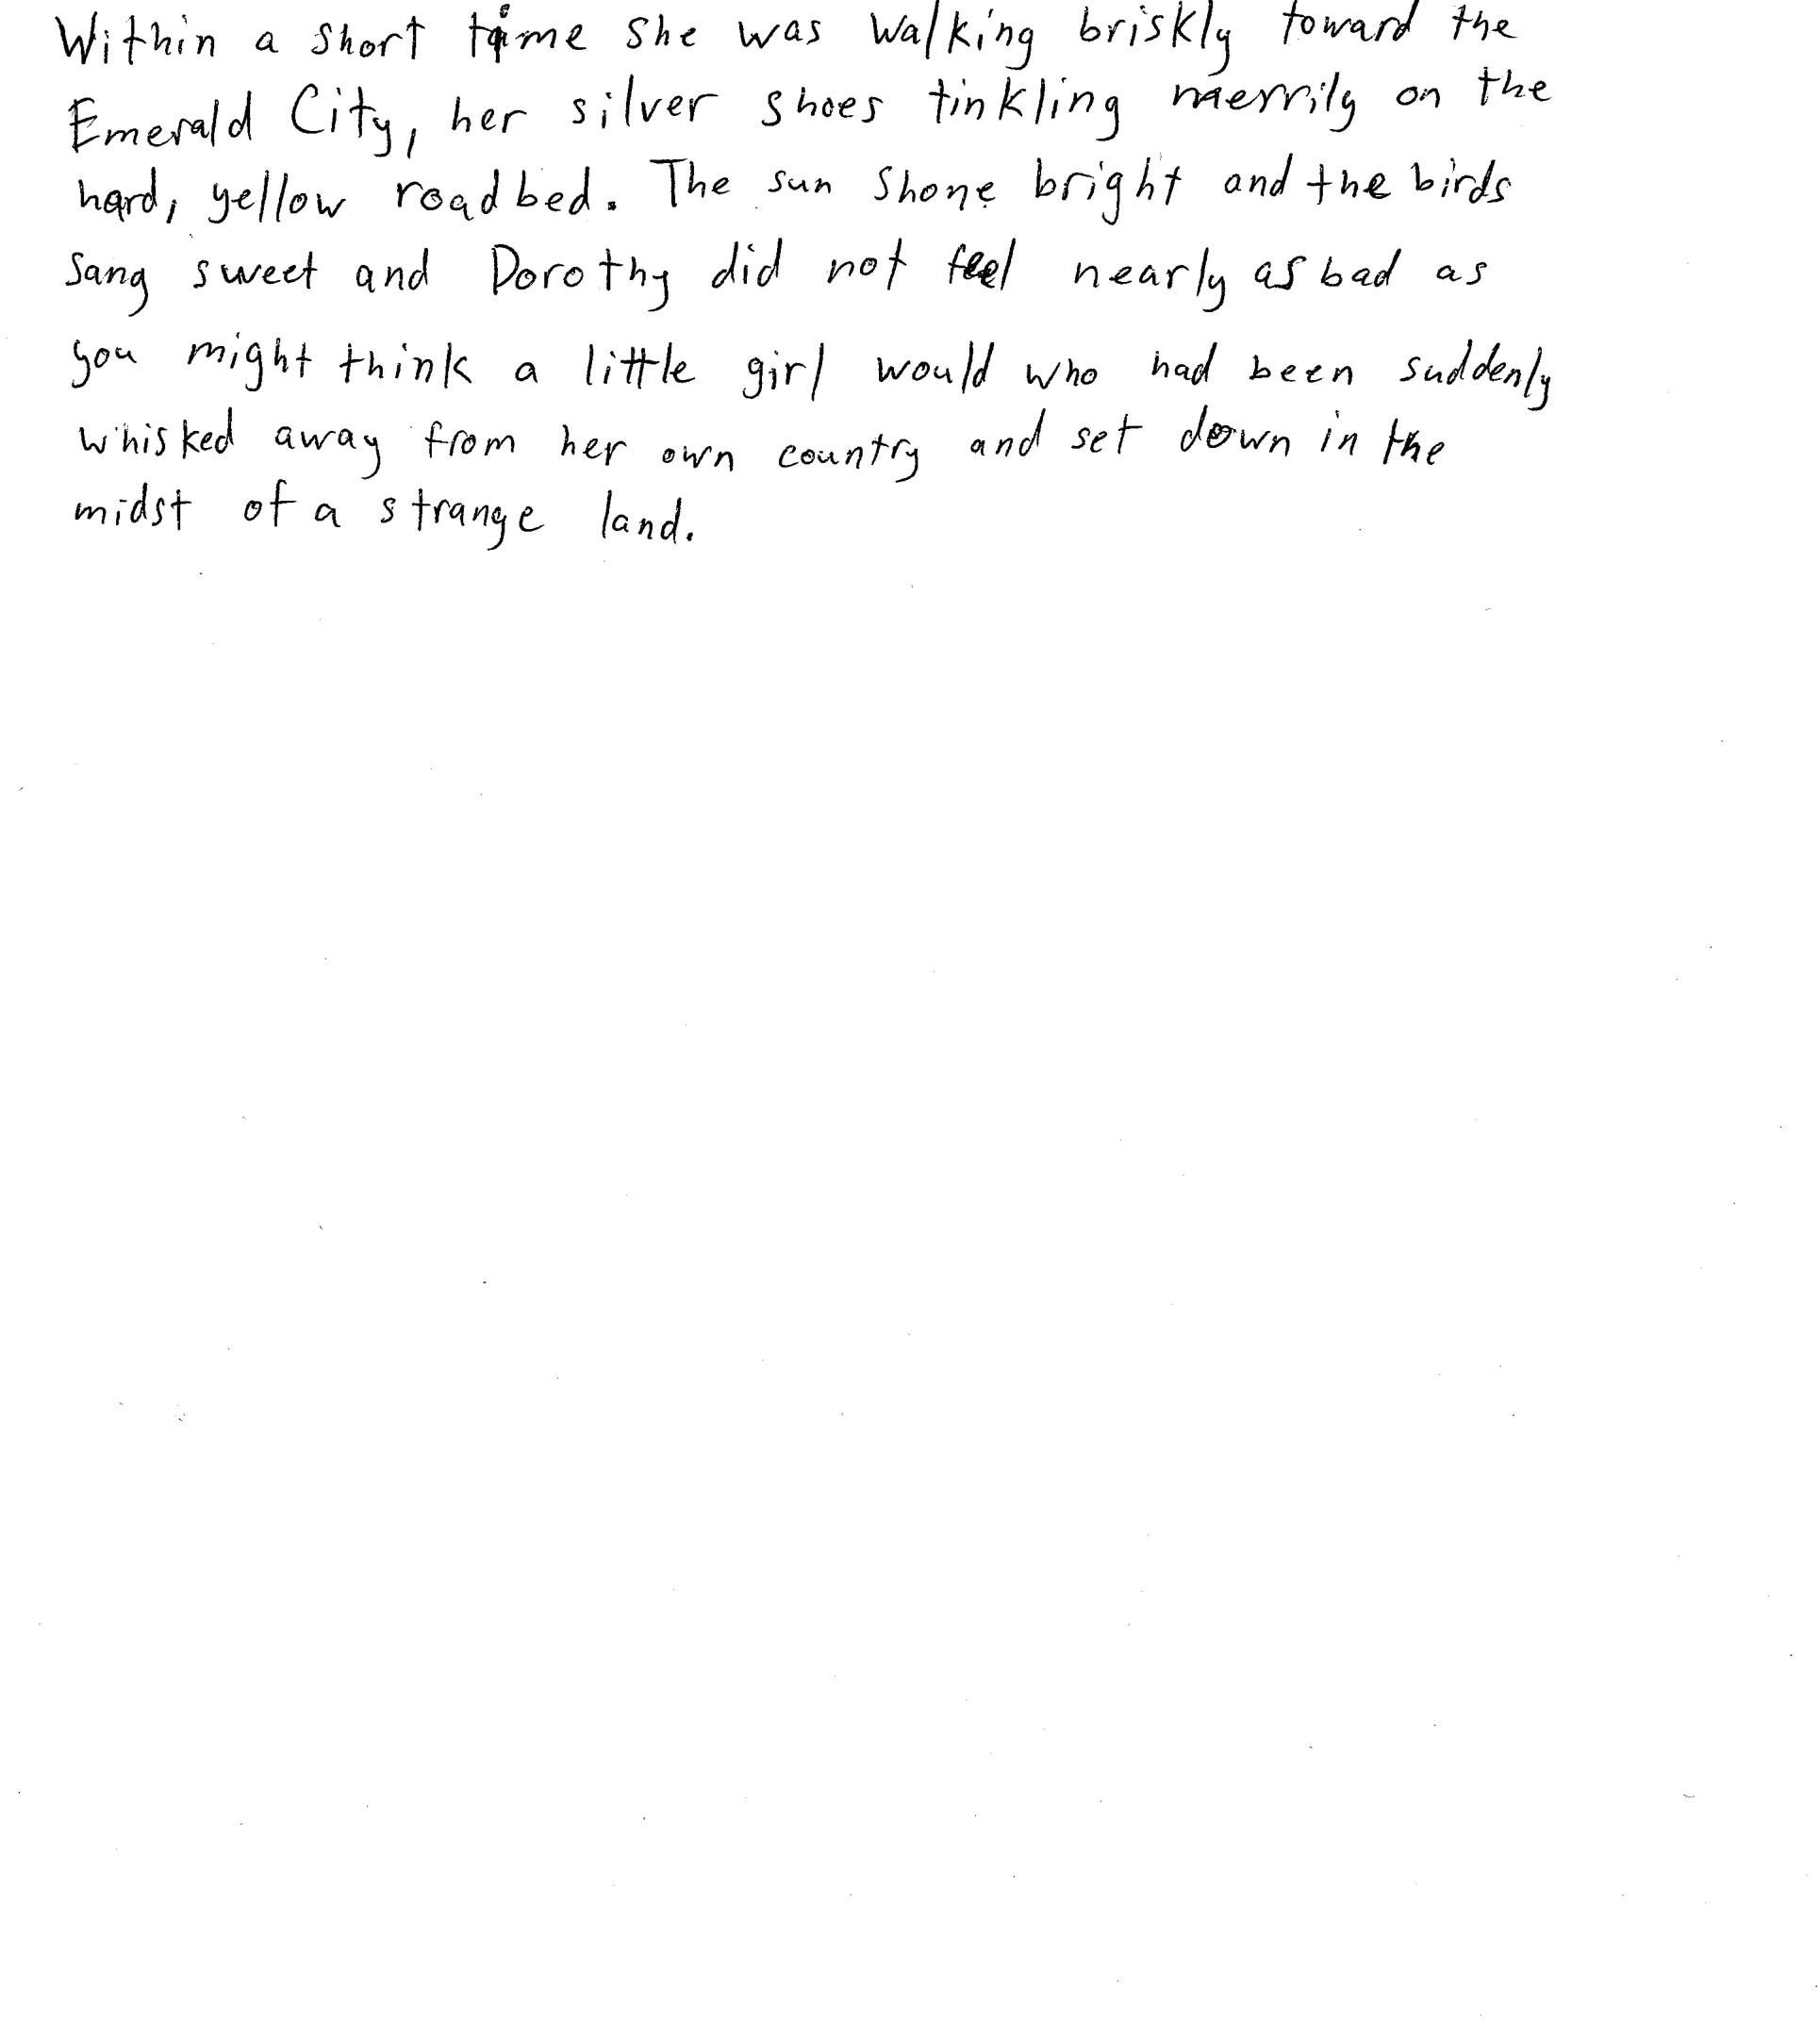 Within a short time she was walking briskly toward the
Emerald City, her silver shoes tinkling merrily on the
hard, yellow roadbed. The sun shone bright and the birds
sang sweet and Dorothy did not feel nearly as bad as
you might think a little girl would who had been suddenly
whisked away from her own country and set down in the
midst of a strange land.